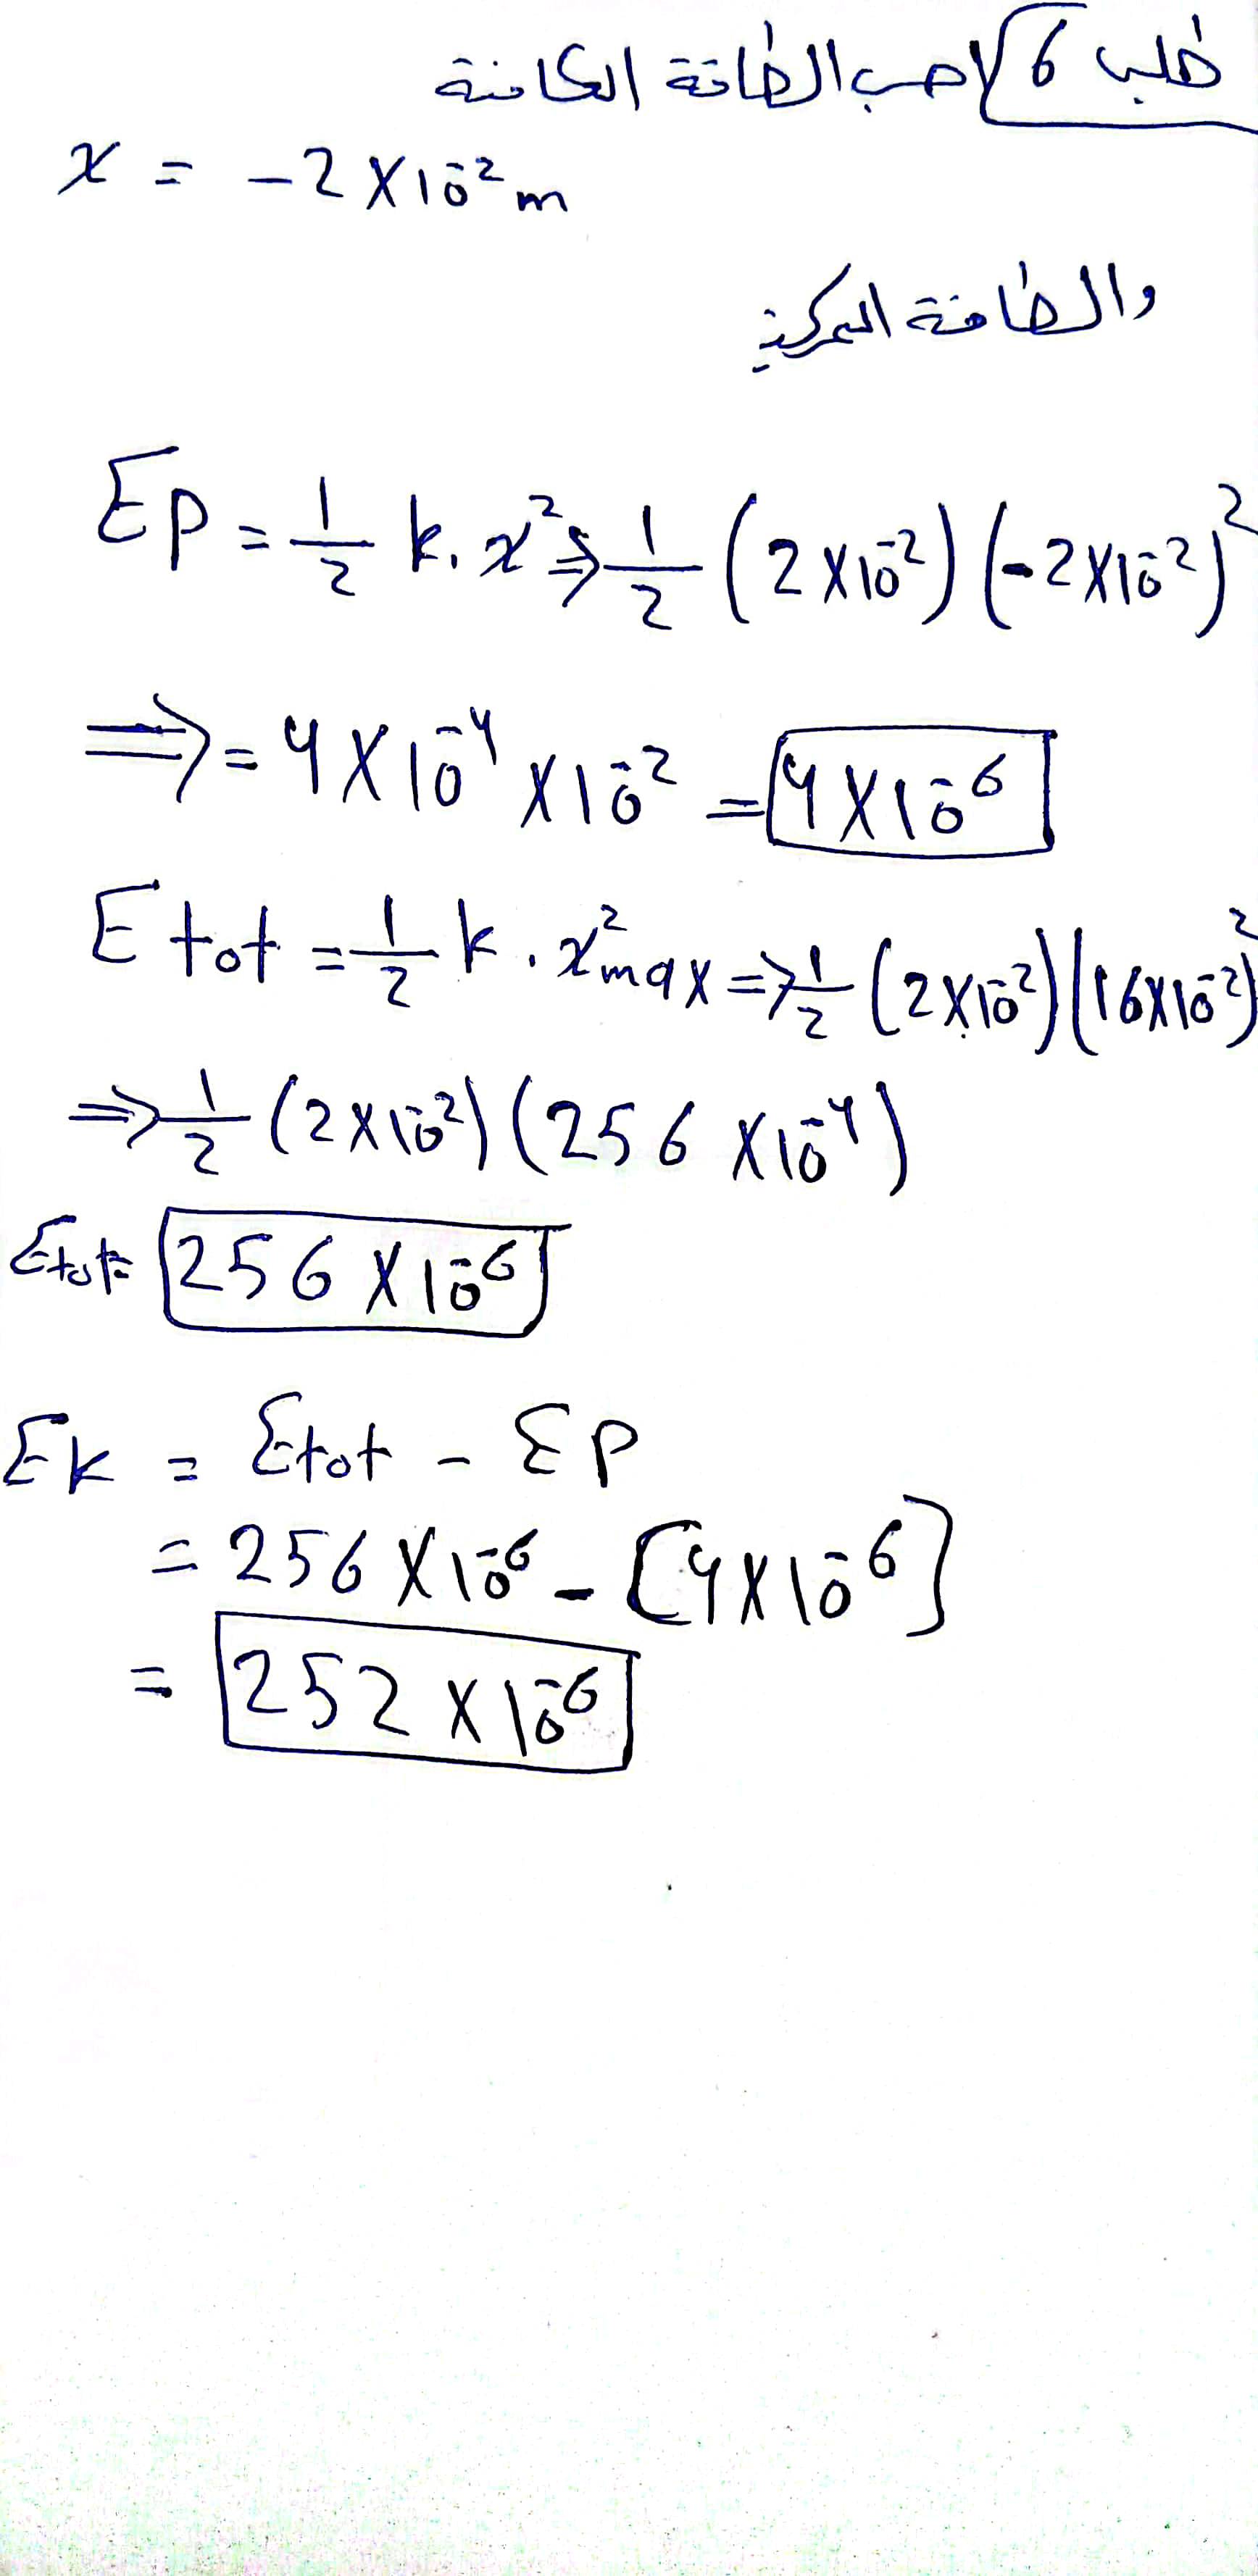 طلب 6 احسب الطاقة الكامنة
x = -2 × 10⁻² m
والطاقة الحركية
Ep = 1/2 k. x² ⇒ 1/2 (2 × 10⁻²) (-2 × 10⁻²)²
⇒ = 4 × 10⁻⁴ × 10⁻² = 4 × 10⁻⁶
E tot = 1/2 k . x²max ⇒ 1/2 (2 × 10⁻²) (16 × 10⁻²)²
⇒ 1/2 (2 × 10⁻²) (256 × 10⁻⁴)
Etot = 256 × 10⁻⁶
Ek = Etot - Ep
= 256 × 10⁻⁶ - [4 × 10⁻⁶]
= 252 × 10⁻⁶